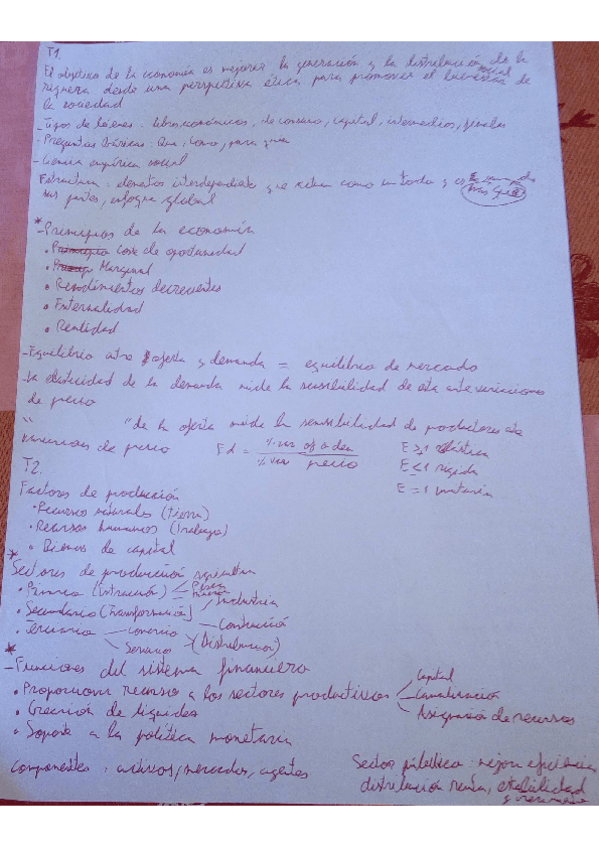 T1.
El objetivo de la economía es mejorar la generación y la distribución de la
riqueza desde una perspectiva ética para promover el bienestar social de
la sociedad
- Tipos de bienes: libres, económicos, de consumo, capital, intermedios, finales
- Preguntas básicas: Que, Como, para quien
- Ciencia empírica social
Estructura: elementos interdependientes que actuan como un todo y es
sus partes, enfoque global
* - Principios de la economía
• Coste de oportunidad
• Marginal
• Rendimientos decrecientes
• Externalidad
• Realidad
- Equilibrio entre oferta y demanda = equilibrio de mercado
- La elasticidad de la demanda mide la sensibilidad de esta ante variaciones
de precio
" " de la oferta mide la sensibilidad de productores ante
variaciones de precio Ed = % var of o dem / % var precio E ≥ 1 elástica
E ≤ 1 rigida
E = 1 unitaria
T2.
Factores de producción
• Recursos naturales (tierra)
• Recursos humanos (trabajo)
• Bienes de capital
*
Sectores de producción
• Primario (Extracción) Pesca
• Secundario (Transformación) Industria
Construcción
• Terciario Comercio (Distribución)
Servicios
*
- Funciones del sistema financiero
• Proporcionar recursos a los sectores productivos Capital
Canalización
Asignación de recursos
• Creación de liquidez
• Soporte a la política monetaria
Componentes: activos, mercados, agentes
Sector público: mejora eficiencia,
distribución renta, estabilidad